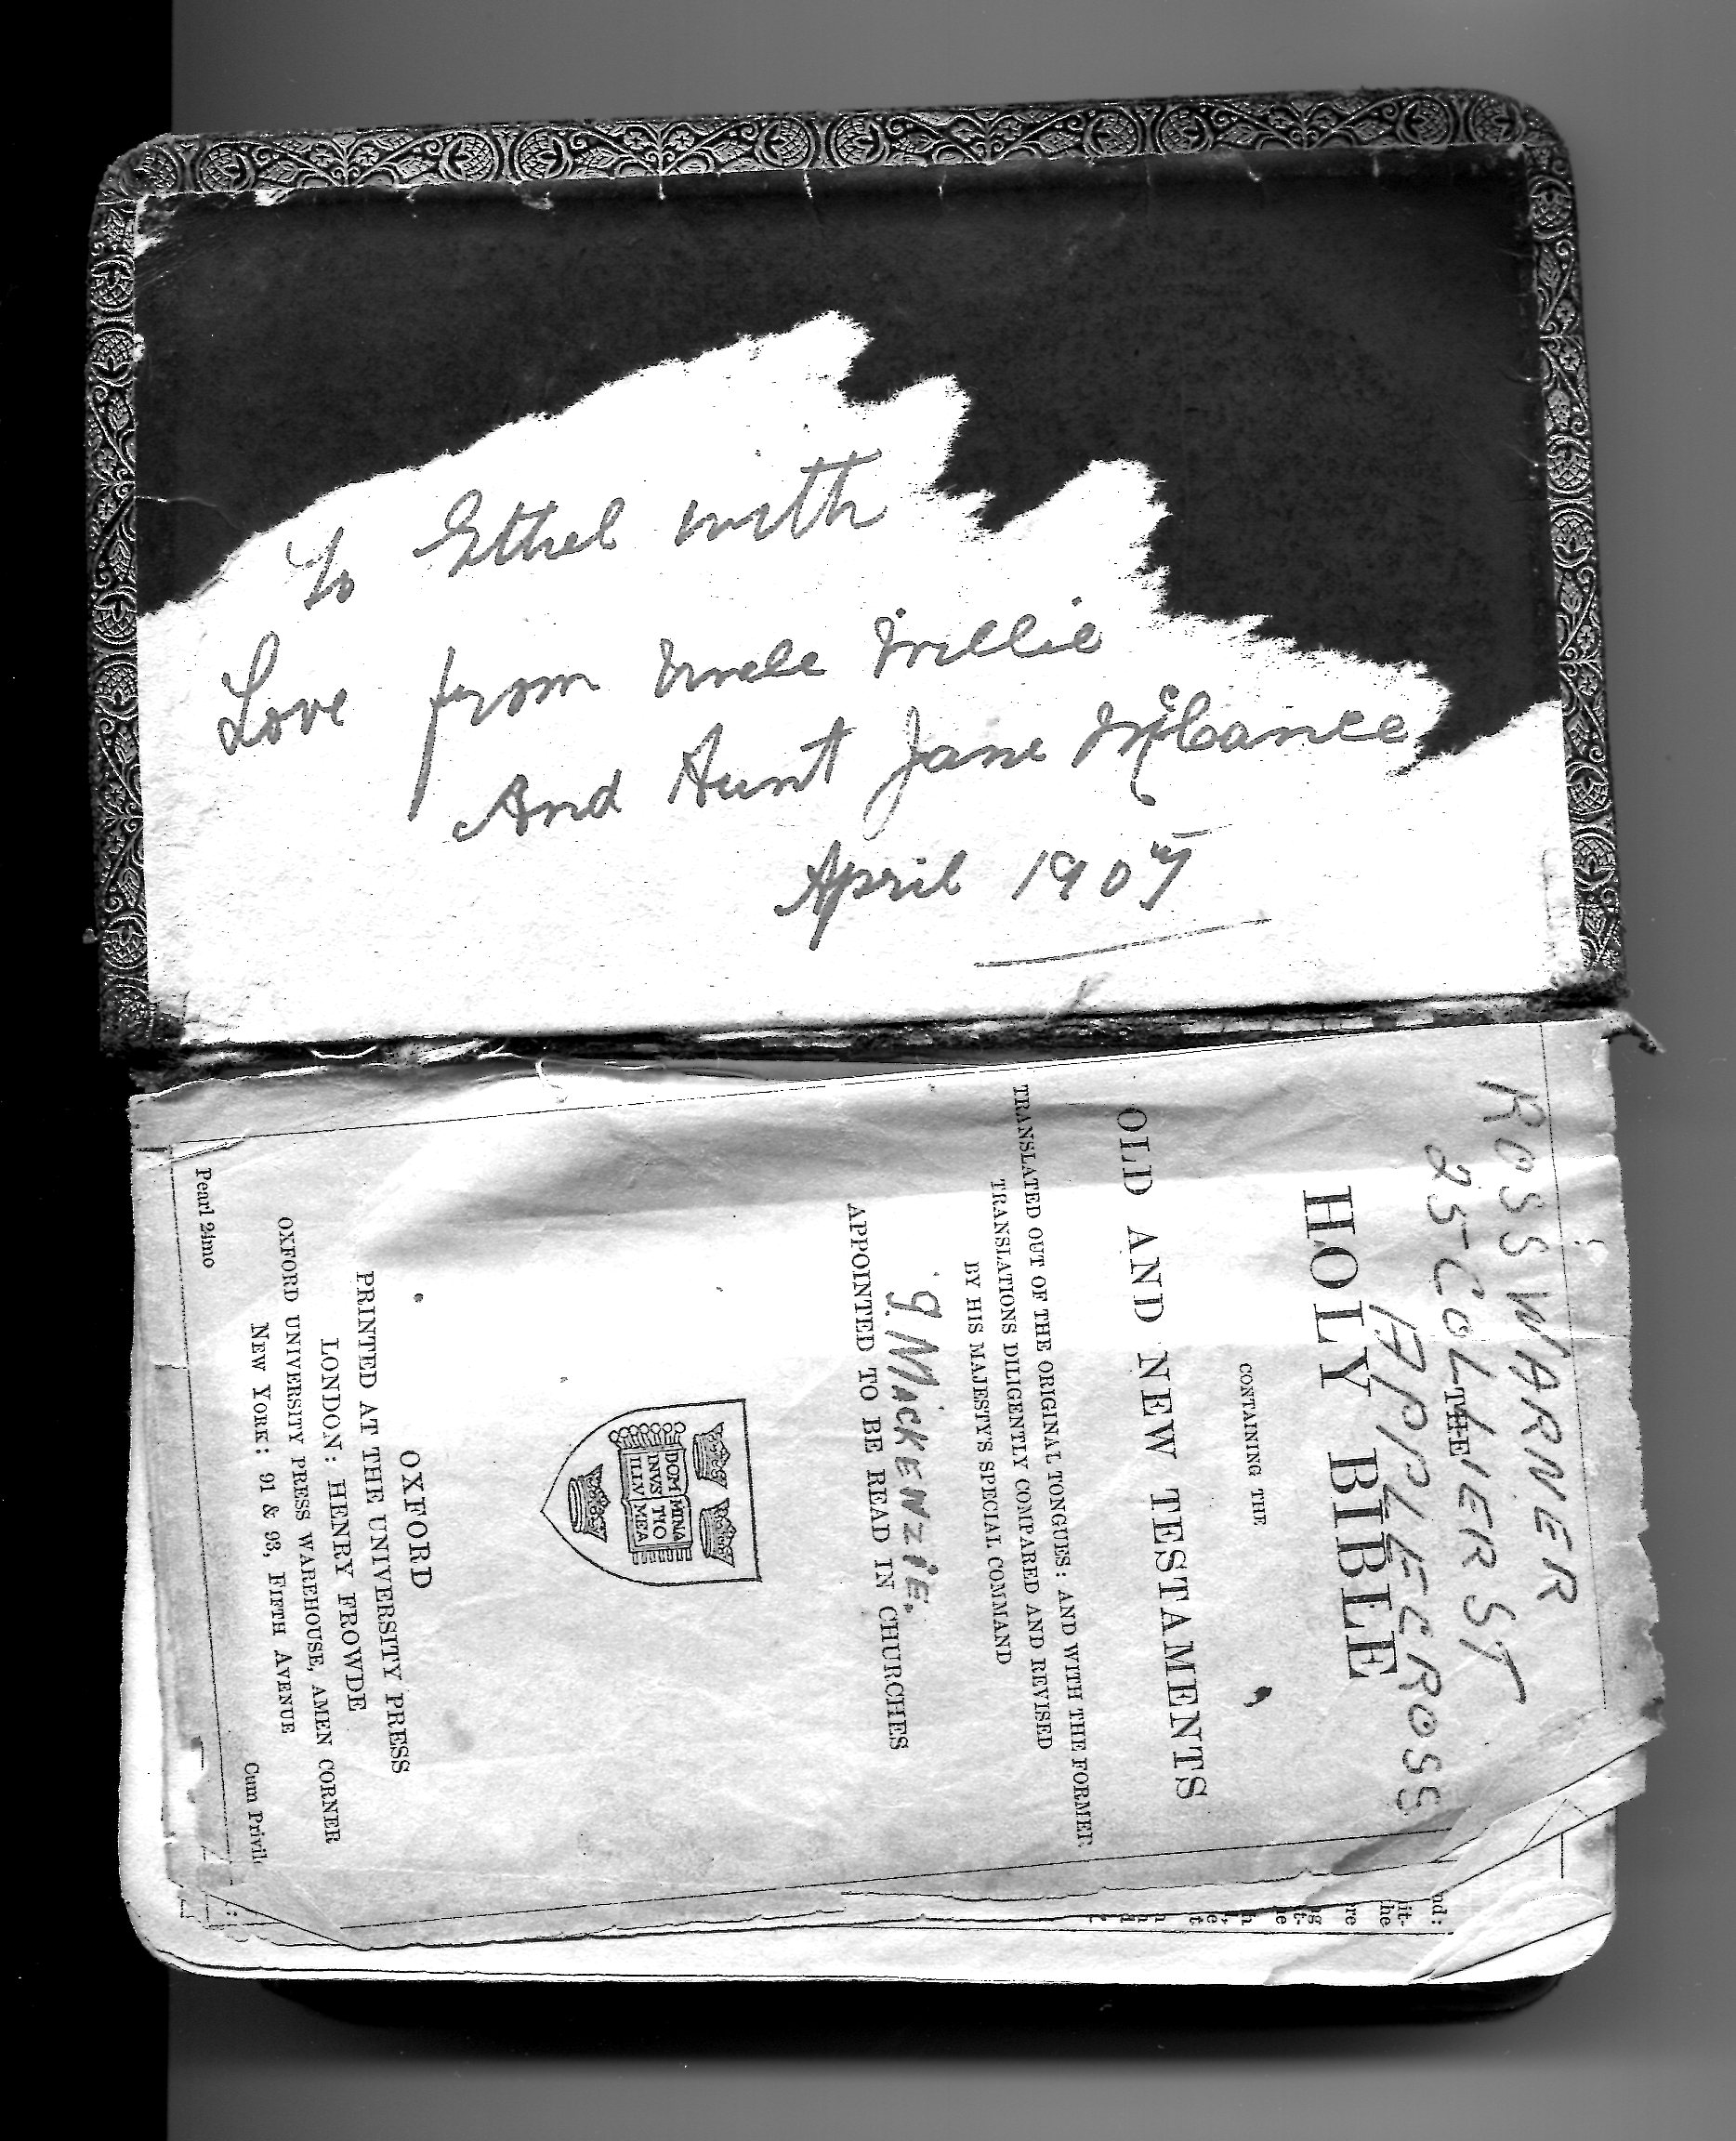 To Ethel with
Love from Uncle Willie
And Aunt Jane McCance
April 1907
ROSS WARNER
25 COLLIER ST
APPLECROSS
THE
HOLY BIBLE
CONTAINING THE
OLD AND NEW TESTAMENTS
TRANSLATED OUT OF THE ORIGINAL TONGUES: AND WITH THE FORMER
TRANSLATIONS DILIGENTLY COMPARED AND REVISED
BY HIS MAJESTY'S SPECIAL COMMAND
G. MacKENZiE.
APPOINTED TO BE READ IN CHURCHES
DOMI MINA
INVS TIO
ILLV MEA
OXFORD
PRINTED AT THE UNIVERSITY PRESS
LONDON: HENRY FROWDE
OXFORD UNIVERSITY PRESS WAREHOUSE, AMEN CORNER
NEW YORK: 91 & 93, FIFTH AVENUE
Pearl 24mo
Cum Privil